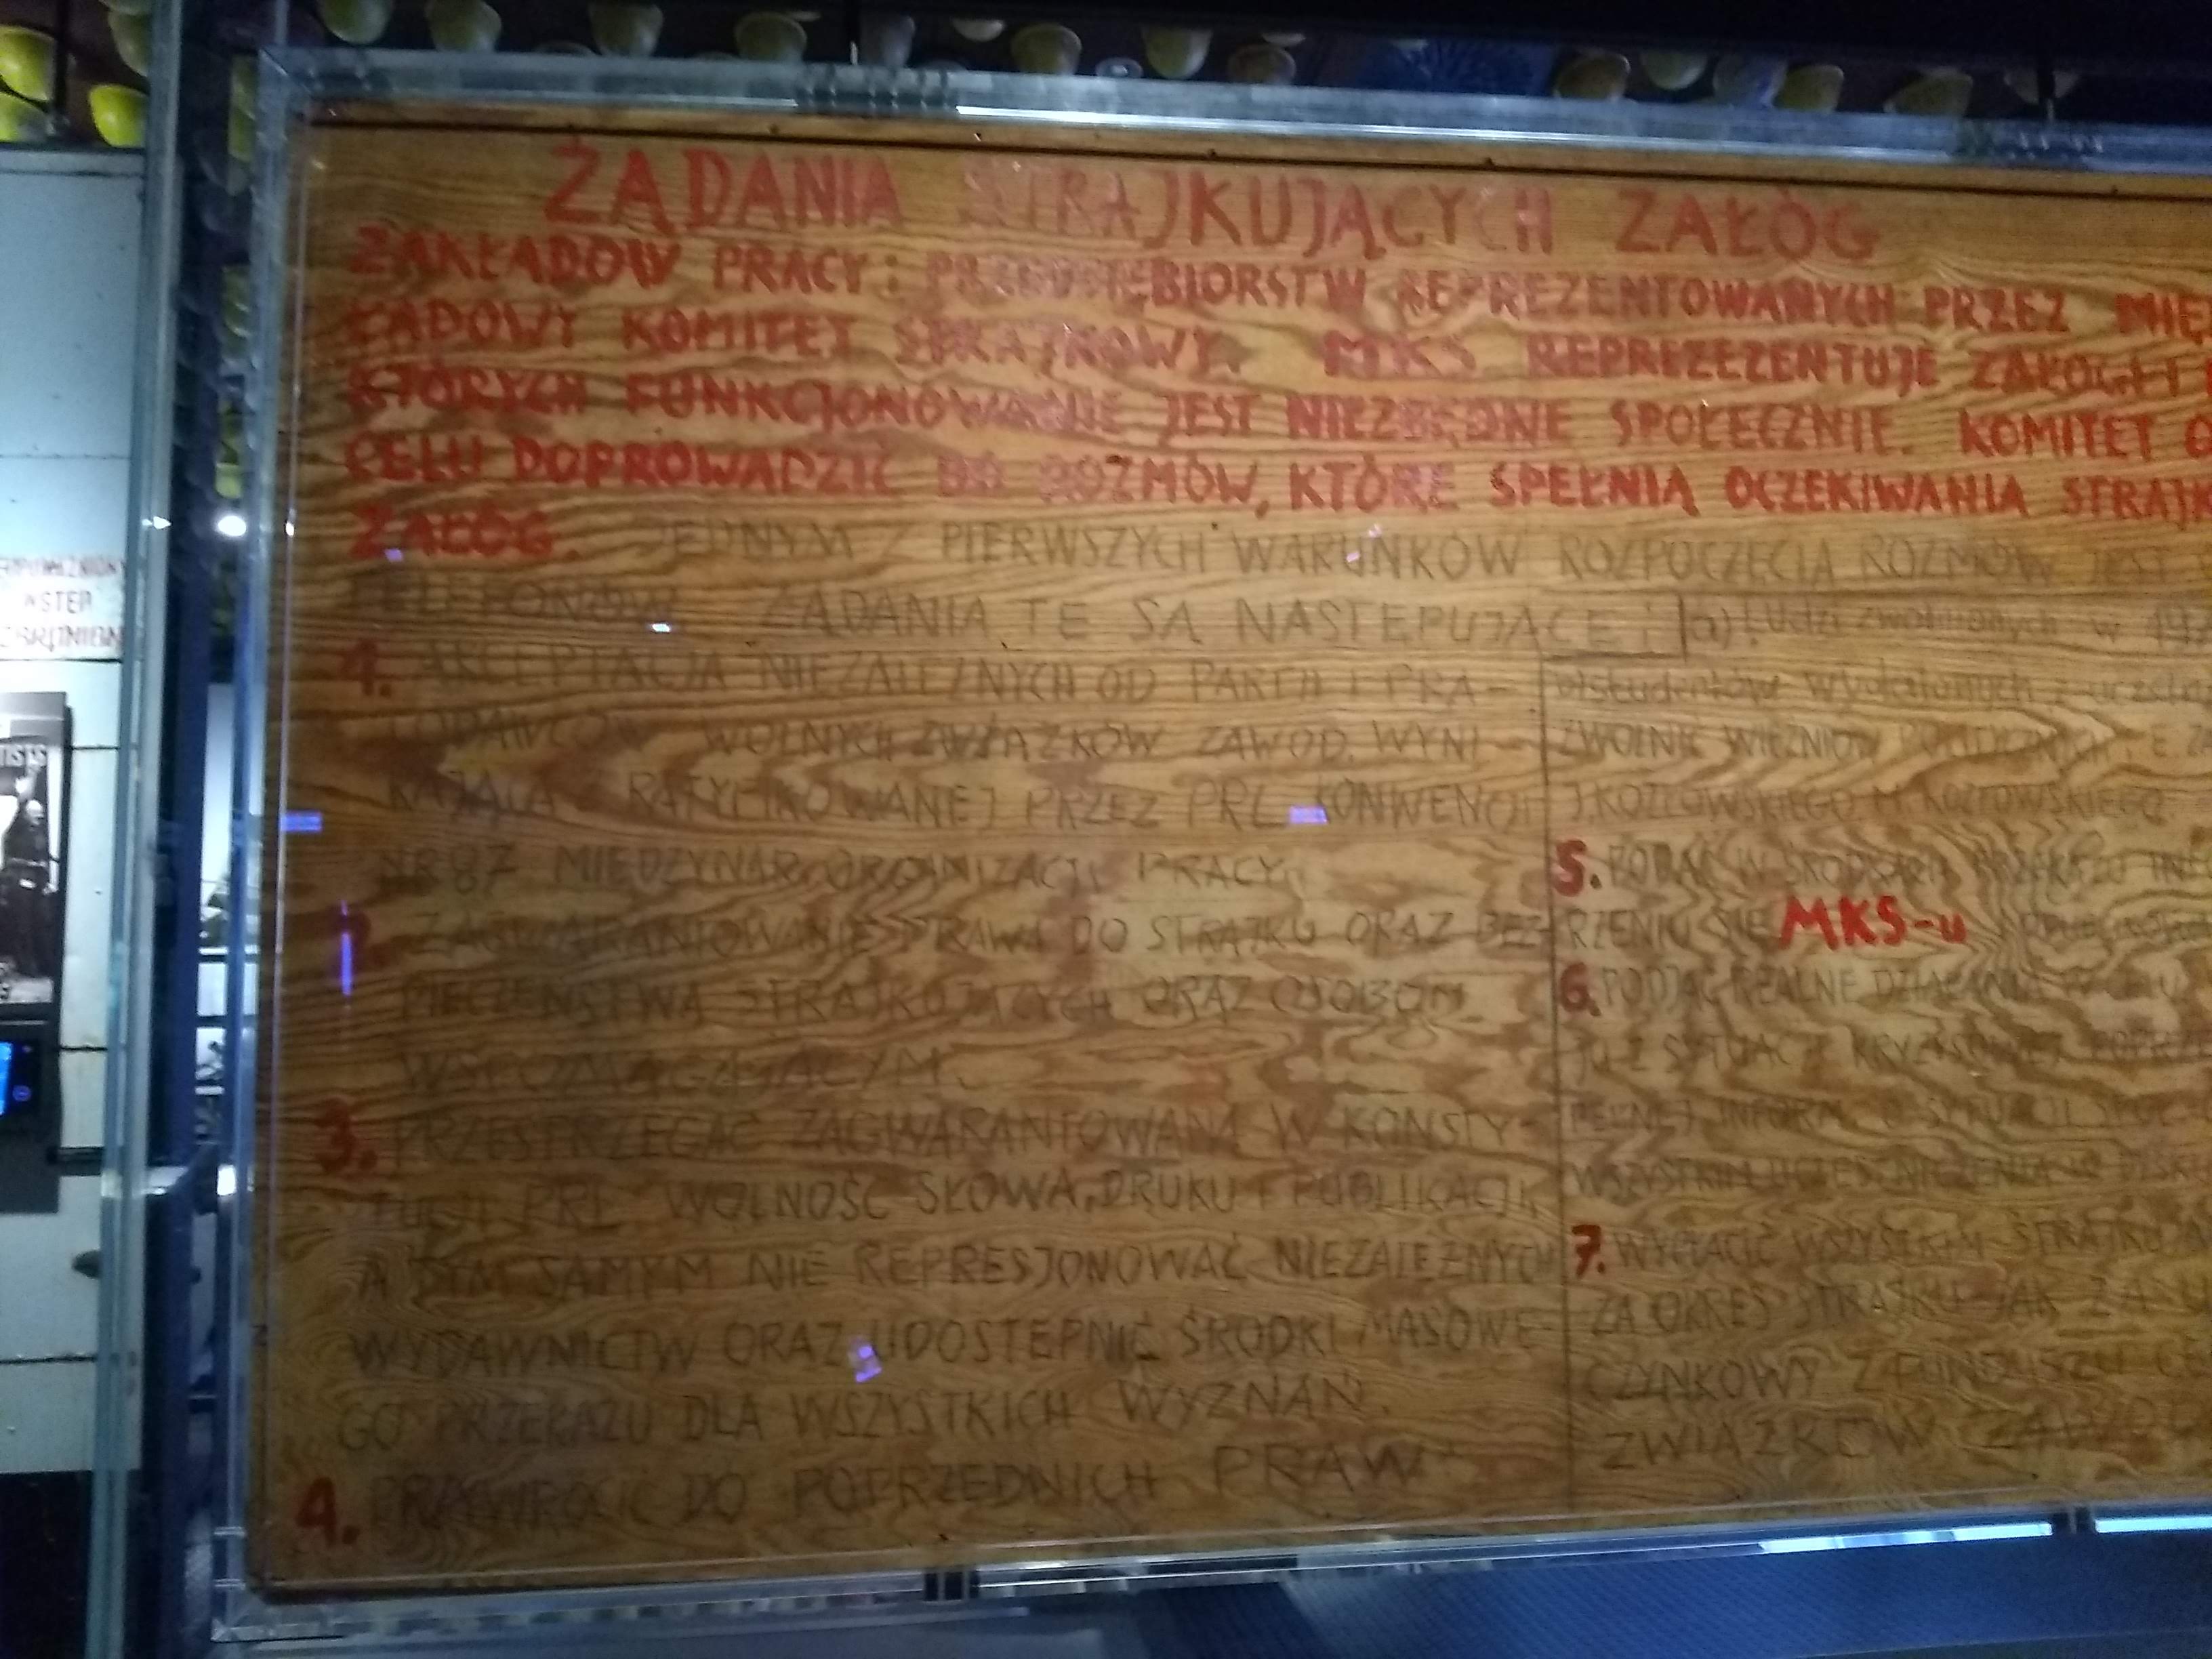 ŻĄDANIA STRAJKUJĄCYCH ZAŁÓG
ZAKŁADÓW PRACY I PRZEDSIĘBIORSTW REPREZENTOWANYCH PRZEZ MIĘ
ŁADOWY KOMITET STRAJKOWY. MKS REPREZEZENTUJE ZAŁOGI I
KTÓRYCH FUNKCJONOWANIE JEST NIEZBĘDNE SPOŁECZNIE. KOMITET
CELU DOPROWADZIĆ DO ROZMÓW, KTÓRE SPEŁNIĄ OCZEKIWANIA STRAJK
ZAŁÓG. JEDNYM Z PIERWSZYCH WARUNKÓW ROZPOCZĘCIA ROZMÓW JEST
ŻĄDANIA TE SĄ NASTĘPUJĄCE:
1. AKCEPTACJA NIEZALEŻNYCH OD PARTII I PRA-
CODAWCÓW WOLNYCH ZWIĄZKÓW ZAWOD. WYNI-
KAJĄCA Z RATYFIKOWANEJ PRZEZ PRL KONWENCJI
NR 87 MIĘDZYNAR. ORGANIZACJI PRACY.
2. ZAGWARANTOWANIE PRAWA DO STRAJKU ORAZ BEZ-
PIECZEŃSTWA STRAJKUJĄCYCH ORAZ OSOBOM
WSPOMAGAJĄCYM.
3. PRZESTRZEGAĆ ZAGWARANTOWANĄ W KONSTY-
TUCJI PRL WOLNOŚĆ SŁOWA, DRUKU I PUBLIKACJI,
A TYM SAMYM NIE REPRESJONOWAĆ NIEZALEŻNYCH
WYDAWNICTW ORAZ UDOSTĘPNIĆ ŚRODKI MASOWE-
GO PRZEKAZU DLA WSZYSTKICH WYZNAŃ.
4. PRZYWRÓCIĆ DO POPRZEDNICH PRAW
a) Ludzi zwolnionych w 197
studentów wydalonych z uczelni
ZWOLNIĆ WIĘŹNIÓW POLITYCZNYCH
J. KOZŁOWSKIEGO KOZŁOWSKIEGO
5. PODAĆ W ŚRODKACH PRZEKAZU INF
RZENIU SIĘ MKS-u
6. PODJĄĆ REALNE DZIAŁANIA
JU Z SYTUACJI KRYZYSOWEJ POPRZ
PEŁNEJ INFORM. O SYTUACJI SPOŁ
WSZYSTKIM UCZESTNICZENIA W DYSKU
7. WYPŁACIĆ WSZYSTKIM STRAJKU
ZA OKRES STRAJKU JAK ZA U
CZYNKOWY Z FUNDUSZU C
ZWIĄZKÓW ZAWOD
WSTĘP